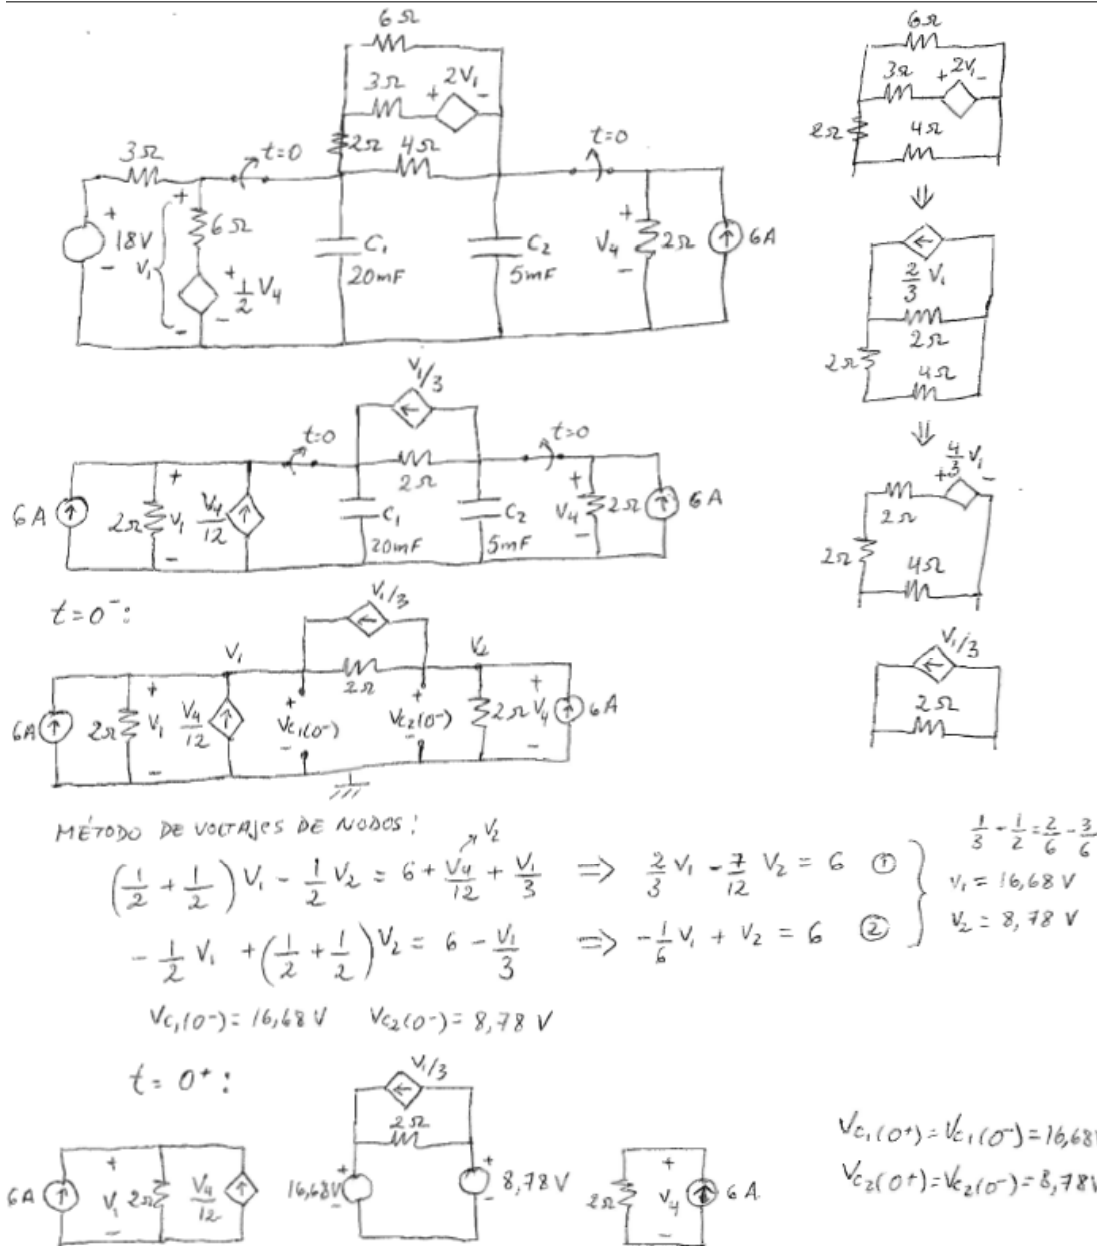 6Ω
3Ω
+ 2V₁ -
2Ω
4Ω
3Ω
t=0
t=0
+
18V
-
V₁
+
-
6Ω
+
½ V₄
-
C₁
20mF
C₂
5mF
+
V₄
-
2Ω
6A
6Ω
3Ω
+ 2V₁ -
2Ω
4Ω
⇓
2/3 V₁
2Ω
2Ω
4Ω
⇓
4/3 V₁
+ -
2Ω
2Ω
4Ω
V₁/3
2Ω
V₁/3
t=0
t=0
2Ω
6A
2Ω
+
V₁
-
V₄/12
C₁
20mF
C₂
5mF
+
V₄
-
2Ω
6A
t=0⁻:
V₁/3
V₁
2Ω
V₂
6A
2Ω
+
V₁
-
V₄/12
+
Vc₁(0⁻)
-
+
Vc₂(0⁻)
-
2Ω
+
V₄
-
6A
MÉTODO DE VOLTAJES DE NODOS:
V₂
(1/2 + 1/2) V₁ - 1/2 V₂ = 6 + V₄/12 + V₁/3 ⇒ 2/3 V₁ - 7/12 V₂ = 6 ①
- 1/2 V₁ + (1/2 + 1/2) V₂ = 6 - V₁/3 ⇒ - 1/6 V₁ + V₂ = 6 ②
1/3 - 1/2 = 2/6 - 3/6
V₁ = 16,68 V
V₂ = 8,78 V
Vc₁(0⁻) = 16,68 V Vc₂(0⁻) = 8,78 V
t = 0⁺:
6A
+
V₁
-
2Ω
V₄/12
V₁/3
2Ω
16,68V
+
-
+
-
8,78V
2Ω
+
V₄
-
6A
Vc₁(0⁺) = Vc₁(0⁻) = 16,68V
Vc₂(0⁺) = Vc₂(0⁻) = 8,78V